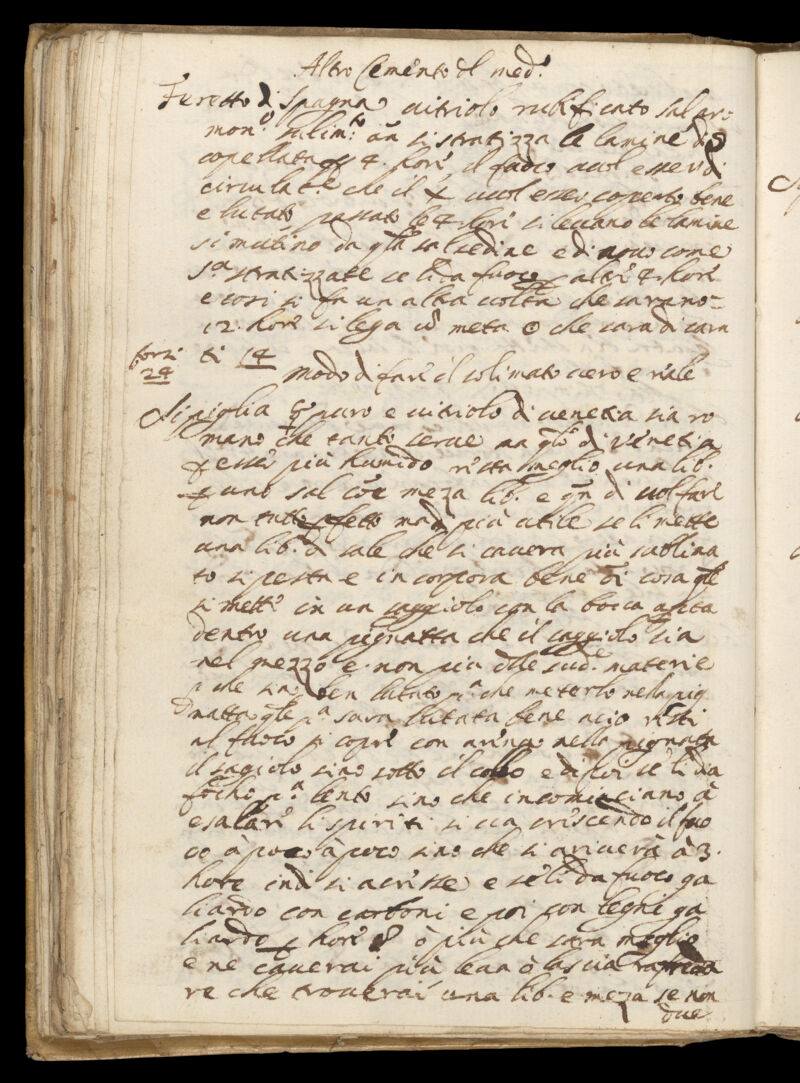 Altro Cemento d'l med.º
Furetto di Spagna vitriolo rubificato sal ar
mon.º salim.to an si stratizza le lamine di
copellata p 4. hore, il fuoco vuol esser di
circulat.e che il vuol esser coperto bene
e lutato passato le 4. hore si levano le lamine
si mutino da q.la salsedine e di novo come
s.a stratizzate se li da fuoco p altre 4. hore
e cosi si fa un altra volta che sarano
12. hore si lega cõ meta ☉ che sara di cara
forsi
24
ti 14
Modo di fare il solimato vero e reale
Si piglia ☿ puro e vitriolo di venetia sia ro
mano che tanto serve ma q.lo di Venetia
p esser più humido resta meglio una lib.
p uno sal cõe meza lib. e q.n di vol fare
non tutto pfetto ma più utile se li mette
una lib. di sale che si cavera più sublima
to si pesta e incorpora bene di cosa q.le
si mette in un saggiolo con la bocca aperta
dentro una pignatta che il saggiolo sia
nel mezzo e non più delle sud.e materie
p che sia ben lutato p.a che meterlo nella pig
natta q.le p.a sara lutata bene acio resti
al fuoco si copre con arena nella pignatta
il sagiolo sino sotto il collo e di poi se li da
focho p.a lento sino che incominciano à
esalare li spiriti si va crescendo il fuo
co à poco à poco sino che si ariverà à 3.
hore indi si acresse e se li da fuoco ga
liardo con carboni e poi con legne ga
liardo p hore 8 ò più che sara meglio
e ne caverai più lascia rafreda
re che troverai una lib. e meza se non
due